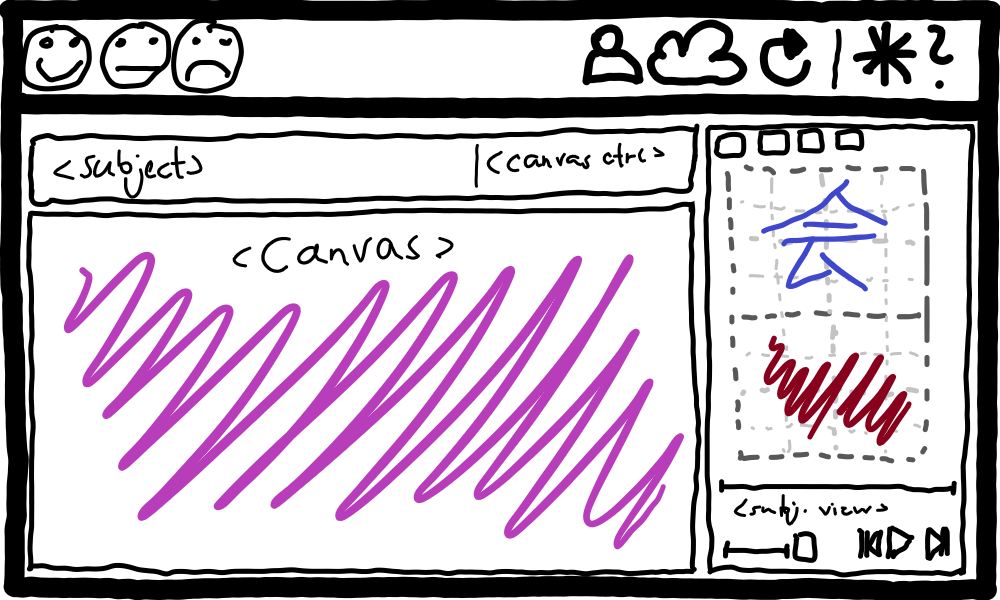 ?
<subject>
<canvas ctrl>
<Canvas>
会
<subj. view>